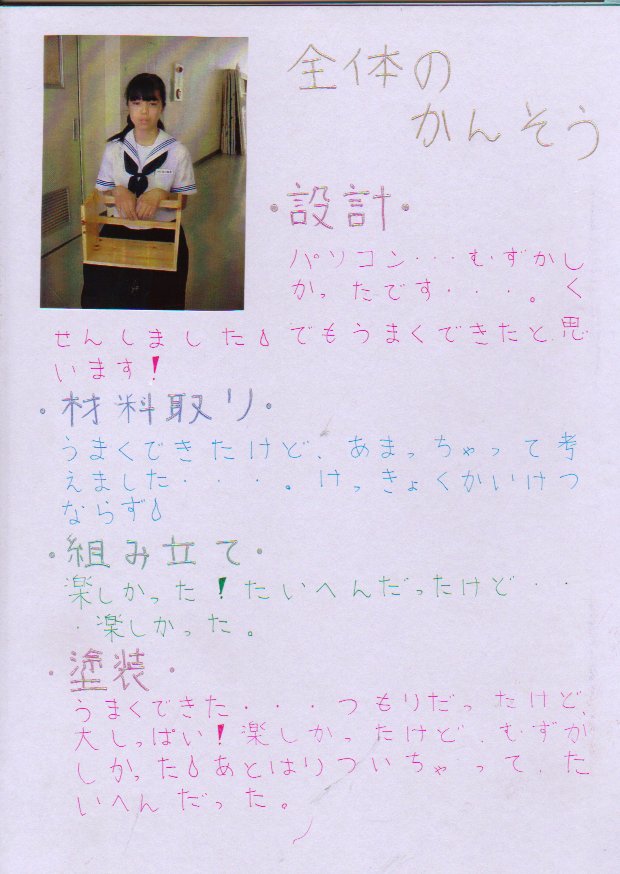 全体の
かんそう
・設計・
パソコン・・・むずかし
かったです・・・。く
せんしました でもうまくできたと思
います!
・材料取り・
うまくできたけど、あまっちゃって考
えました・・・。けっきょくかいけつ
ならず
・組み立て・
楽しかった!たいへんだったけど・・
・楽しかった。
・塗装・
うまくできた・・・つもりだったけど、
大しっぱい!楽しかったけど、むずか
しかった あとはりついちゃって、た
いへんだった。